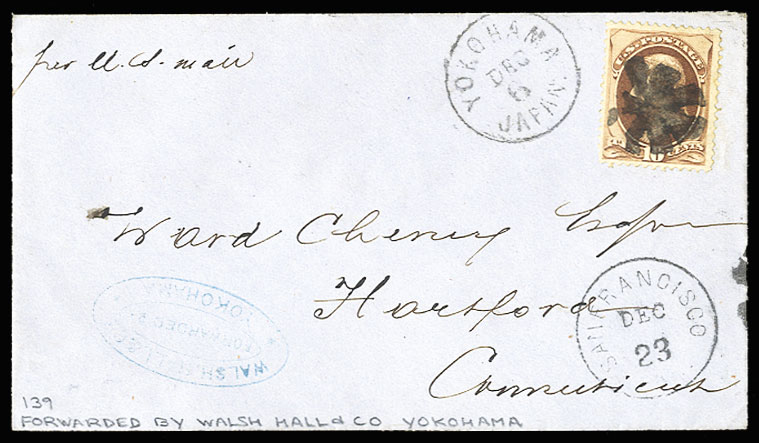 per U.S. mail
YOKOHAMA
DEC
6
JAPAN
U.S. POSTAGE
10 CENTS
Ward Cheney Esqr
Hartford
Connecticut
SAN FRANCISCO
DEC
23
WALSH, HALL & CO
FORWARDED BY
YOKOHAMA
139
FORWARDED BY WALSH HALL & CO YOKOHAMA